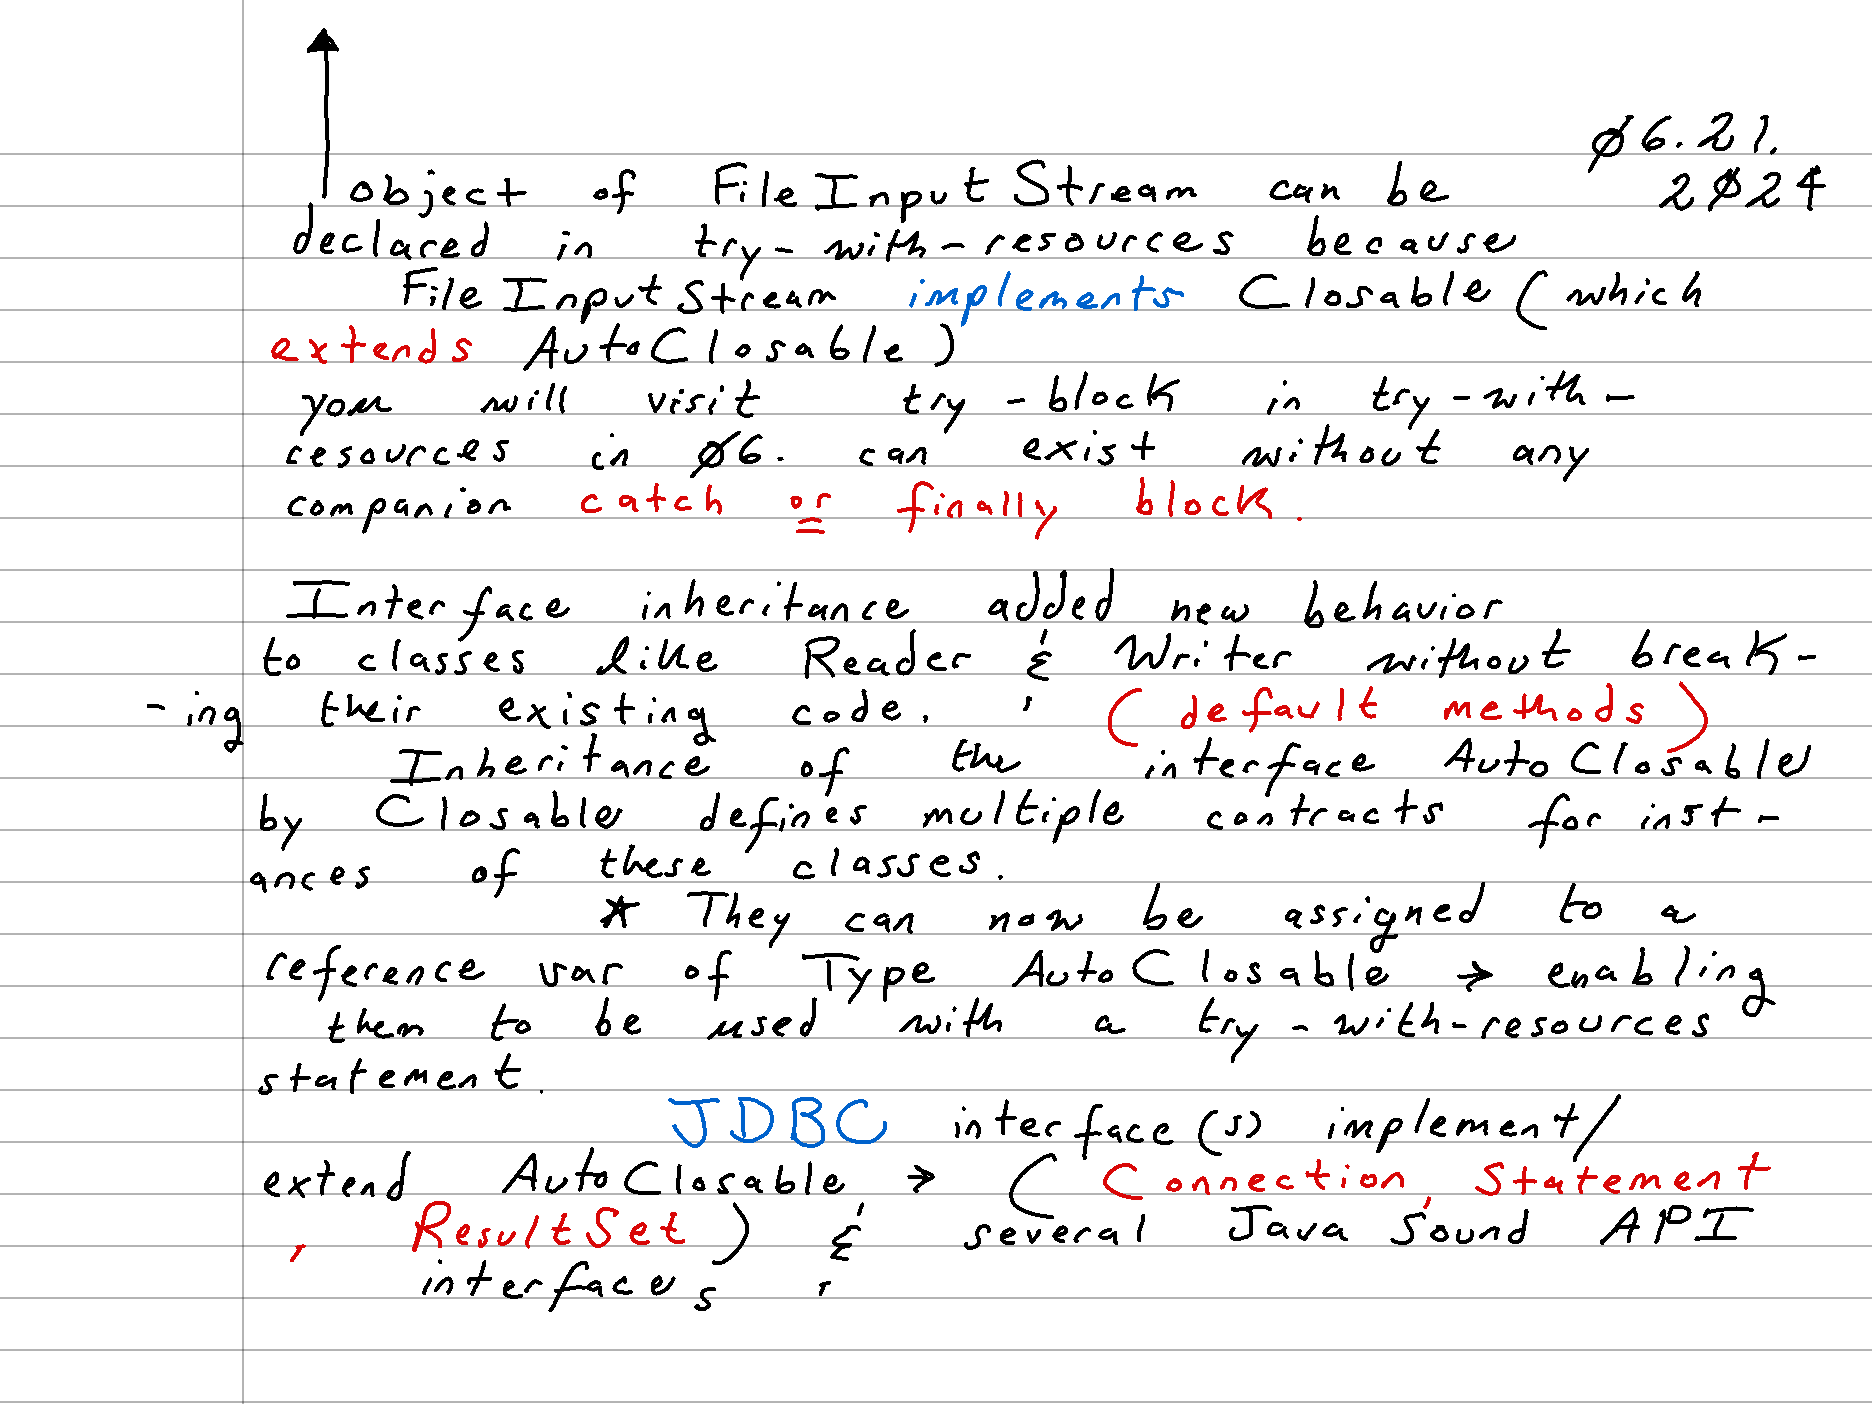 Ø6.21.
2Ø24
object of FileInputStream can be
declared in try-with-resources because
FileInputStream implements Closable (which
extends AutoClosable)
you will visit try-block in try-with-
resources in Ø6. can exist without any
companion catch or finally block.
Interface inheritance added new behavior
to classes like Reader & Writer without break-
-ing their existing code. (default methods)
Inheritance of the interface AutoClosable
by Closable defines multiple contracts for inst-
ances of these classes.
* They can now be assigned to a
reference var of Type AutoClosable → enabling
them to be used with a try-with-resources
statement.
JDBC interface(s) implement/
extend AutoClosable, → (Connection, Statement
, ResultSet) & several Java Sound API
interfaces.